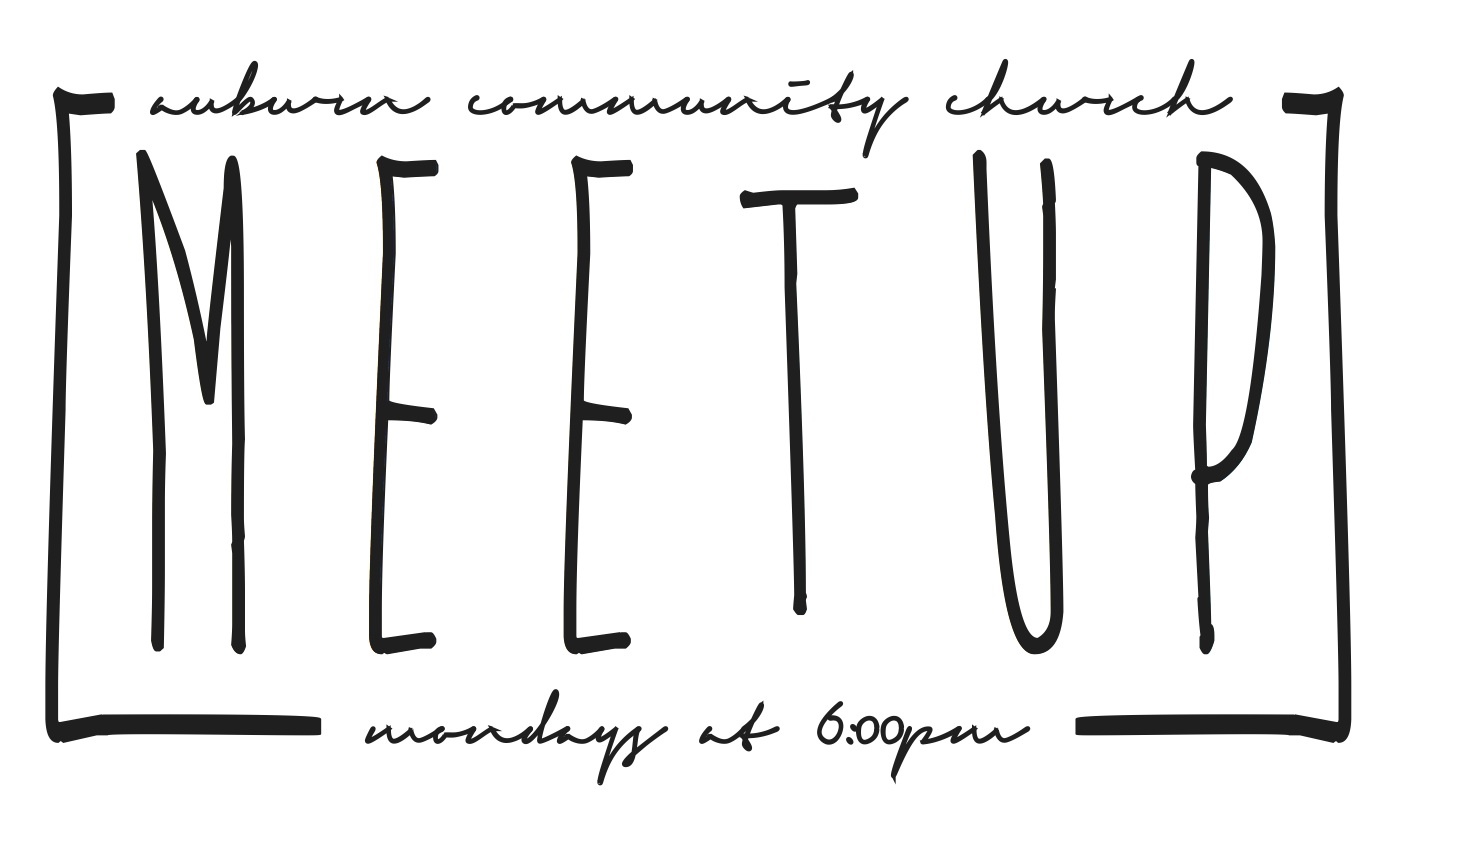 auburn community church
MEETUP
mondays at 6:00pm